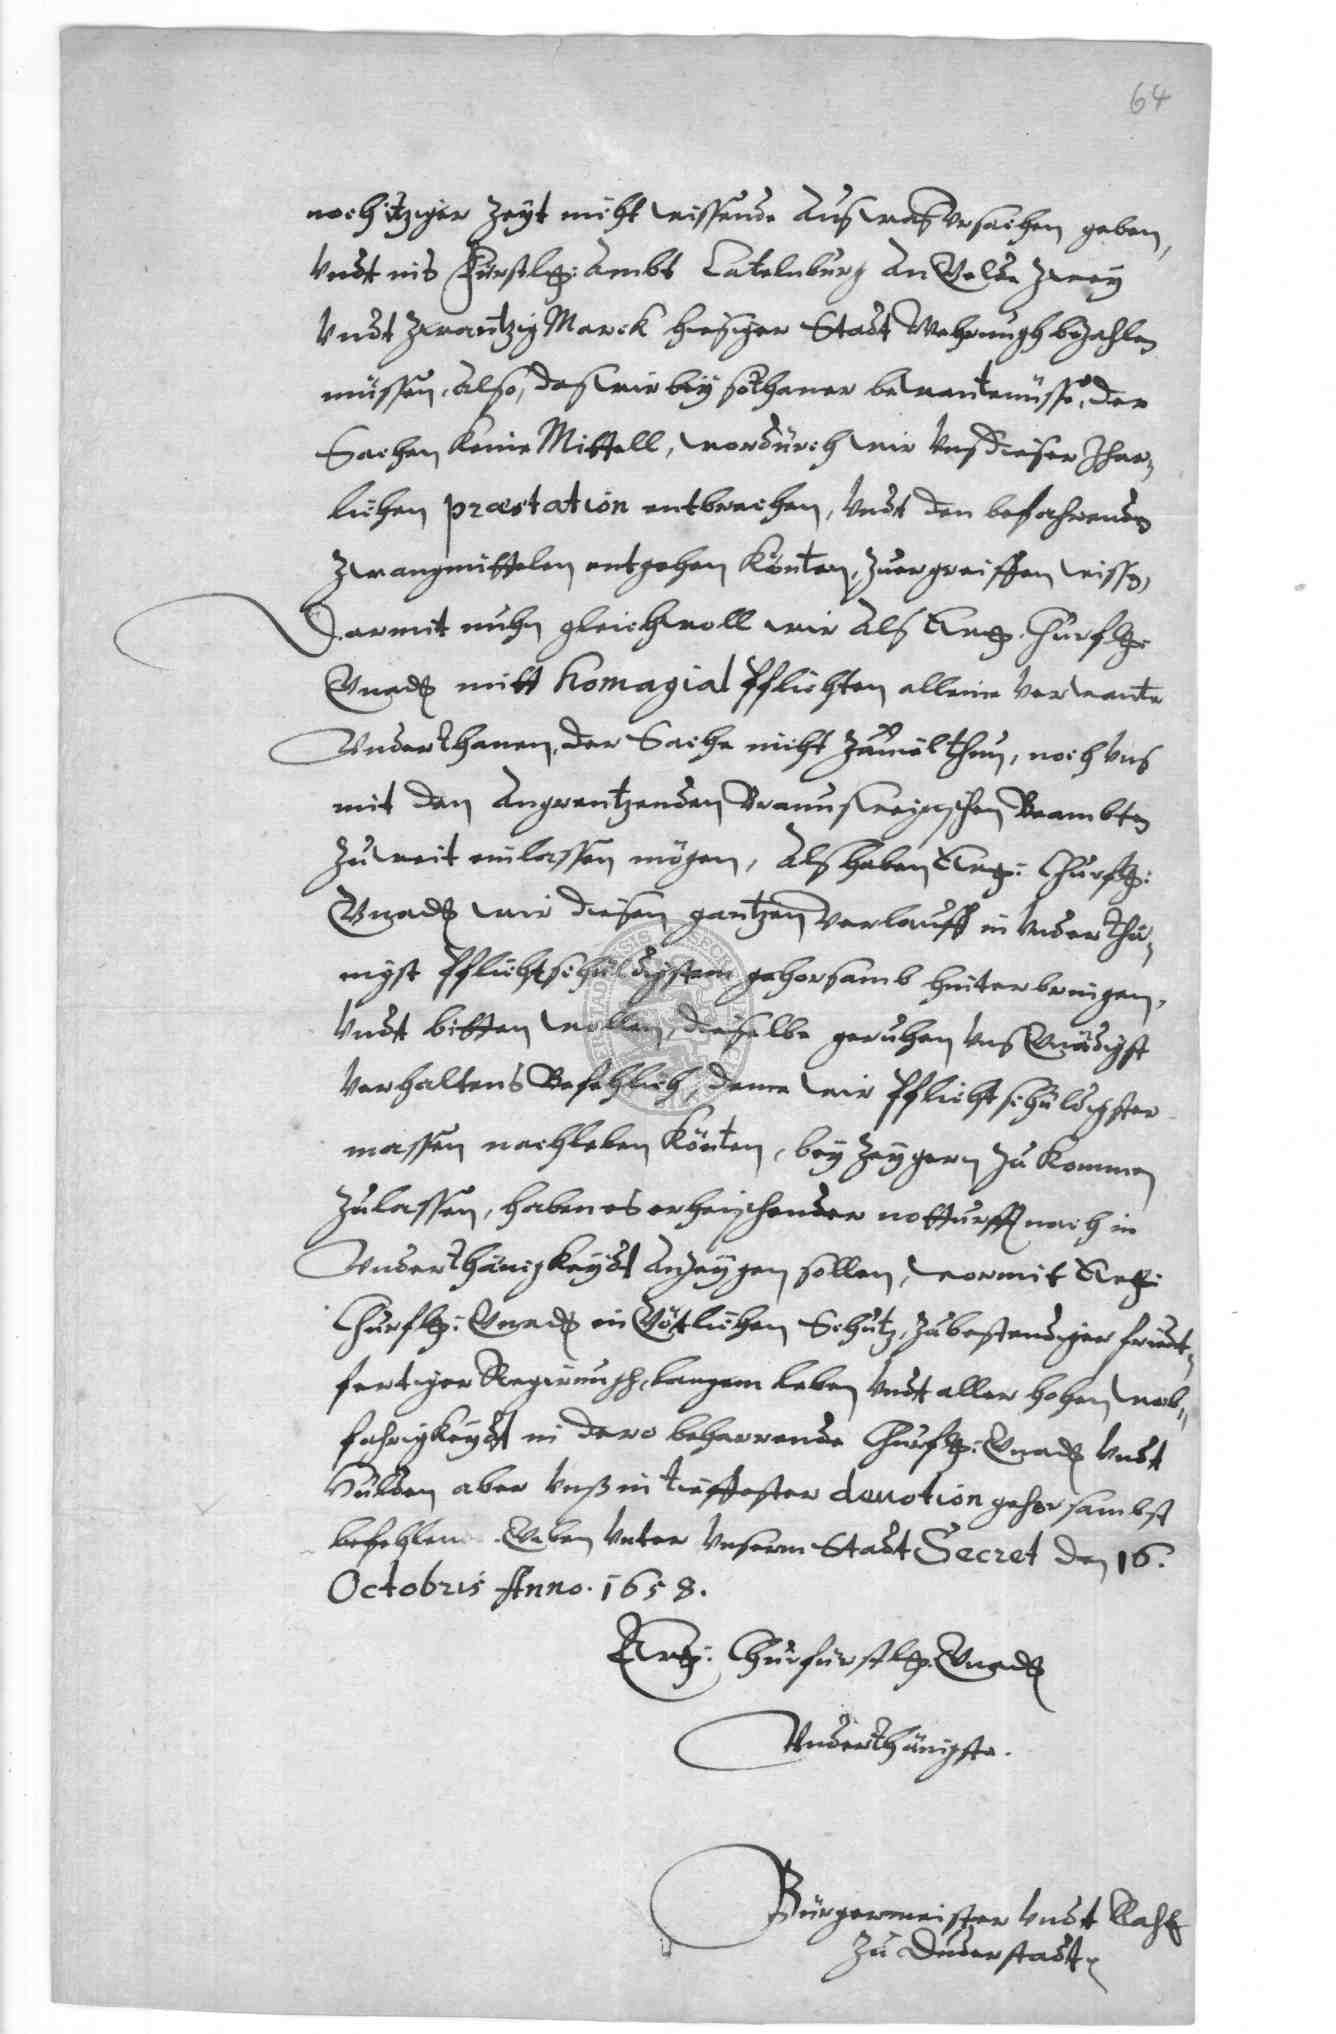 64
noch itziger Zeyt nicht wissende Auß was Ursachen geben,
Undt ins Fürstlg: Ambt Catelnburg An Gelde Zwey
Undt Zwantzig Marck hiesiger Stadt Wehrungh bezahlen
müssen, Also, das wir bey sothaner bewantnüsse, der
Sachen keine Mittell, wordurch wir Uns dieser Jhar,
lichen præstation entbrechen, Undt den befahrenden
Zwangmittelen entgehen könten, Zuergreiffen wissen,
Darmit nuhn gleichwoll wir Alß Ewg. Churflg:
Gnadg mitt homagial Pflichten alleine Verwante
Underthanen, der Sache nicht Zuuiel thun, noch Uns
mit den Angrentzenden Braunsweigischen Beambten
Zu weit einlassen mögen, Alß haben Ewg: Churflg:
Gnadg wir diesen gantzen Verlauff in Underthä,
nigst Pflichtschüldigstem gehorsamb hinterbringen,
Undt bitten wollen, dieselbe geruhen Uns Gnädigst
Verhaltens Befehlich, deme wir Pflichtschüldigster
massen nachleben könten, bey Zeygern Zu kommen
Zulassen, haben es erheischender notturfft nach in
Underthänigkeydt Anzeygen sollen, wormit Ewg:
Churflg: Gnadg in Göttlichen Schutz, Zu bestendiger friedt,
fertiger Regirungh, langem leben Undt aller hohen
fahrigkeydt in dero beharrende Churflg: Gnadg Undt
Hulden aber Unß in tieffester deuotion gehorsambst
befehlen. Geben Unter Unserm Stadt Secret den 16.
Octobris Anno. 1658.
Ewg: Churfürstlg. Gnadg
Underthänigste.
Bürgermeister Undt Raht
Zu Duderstadt